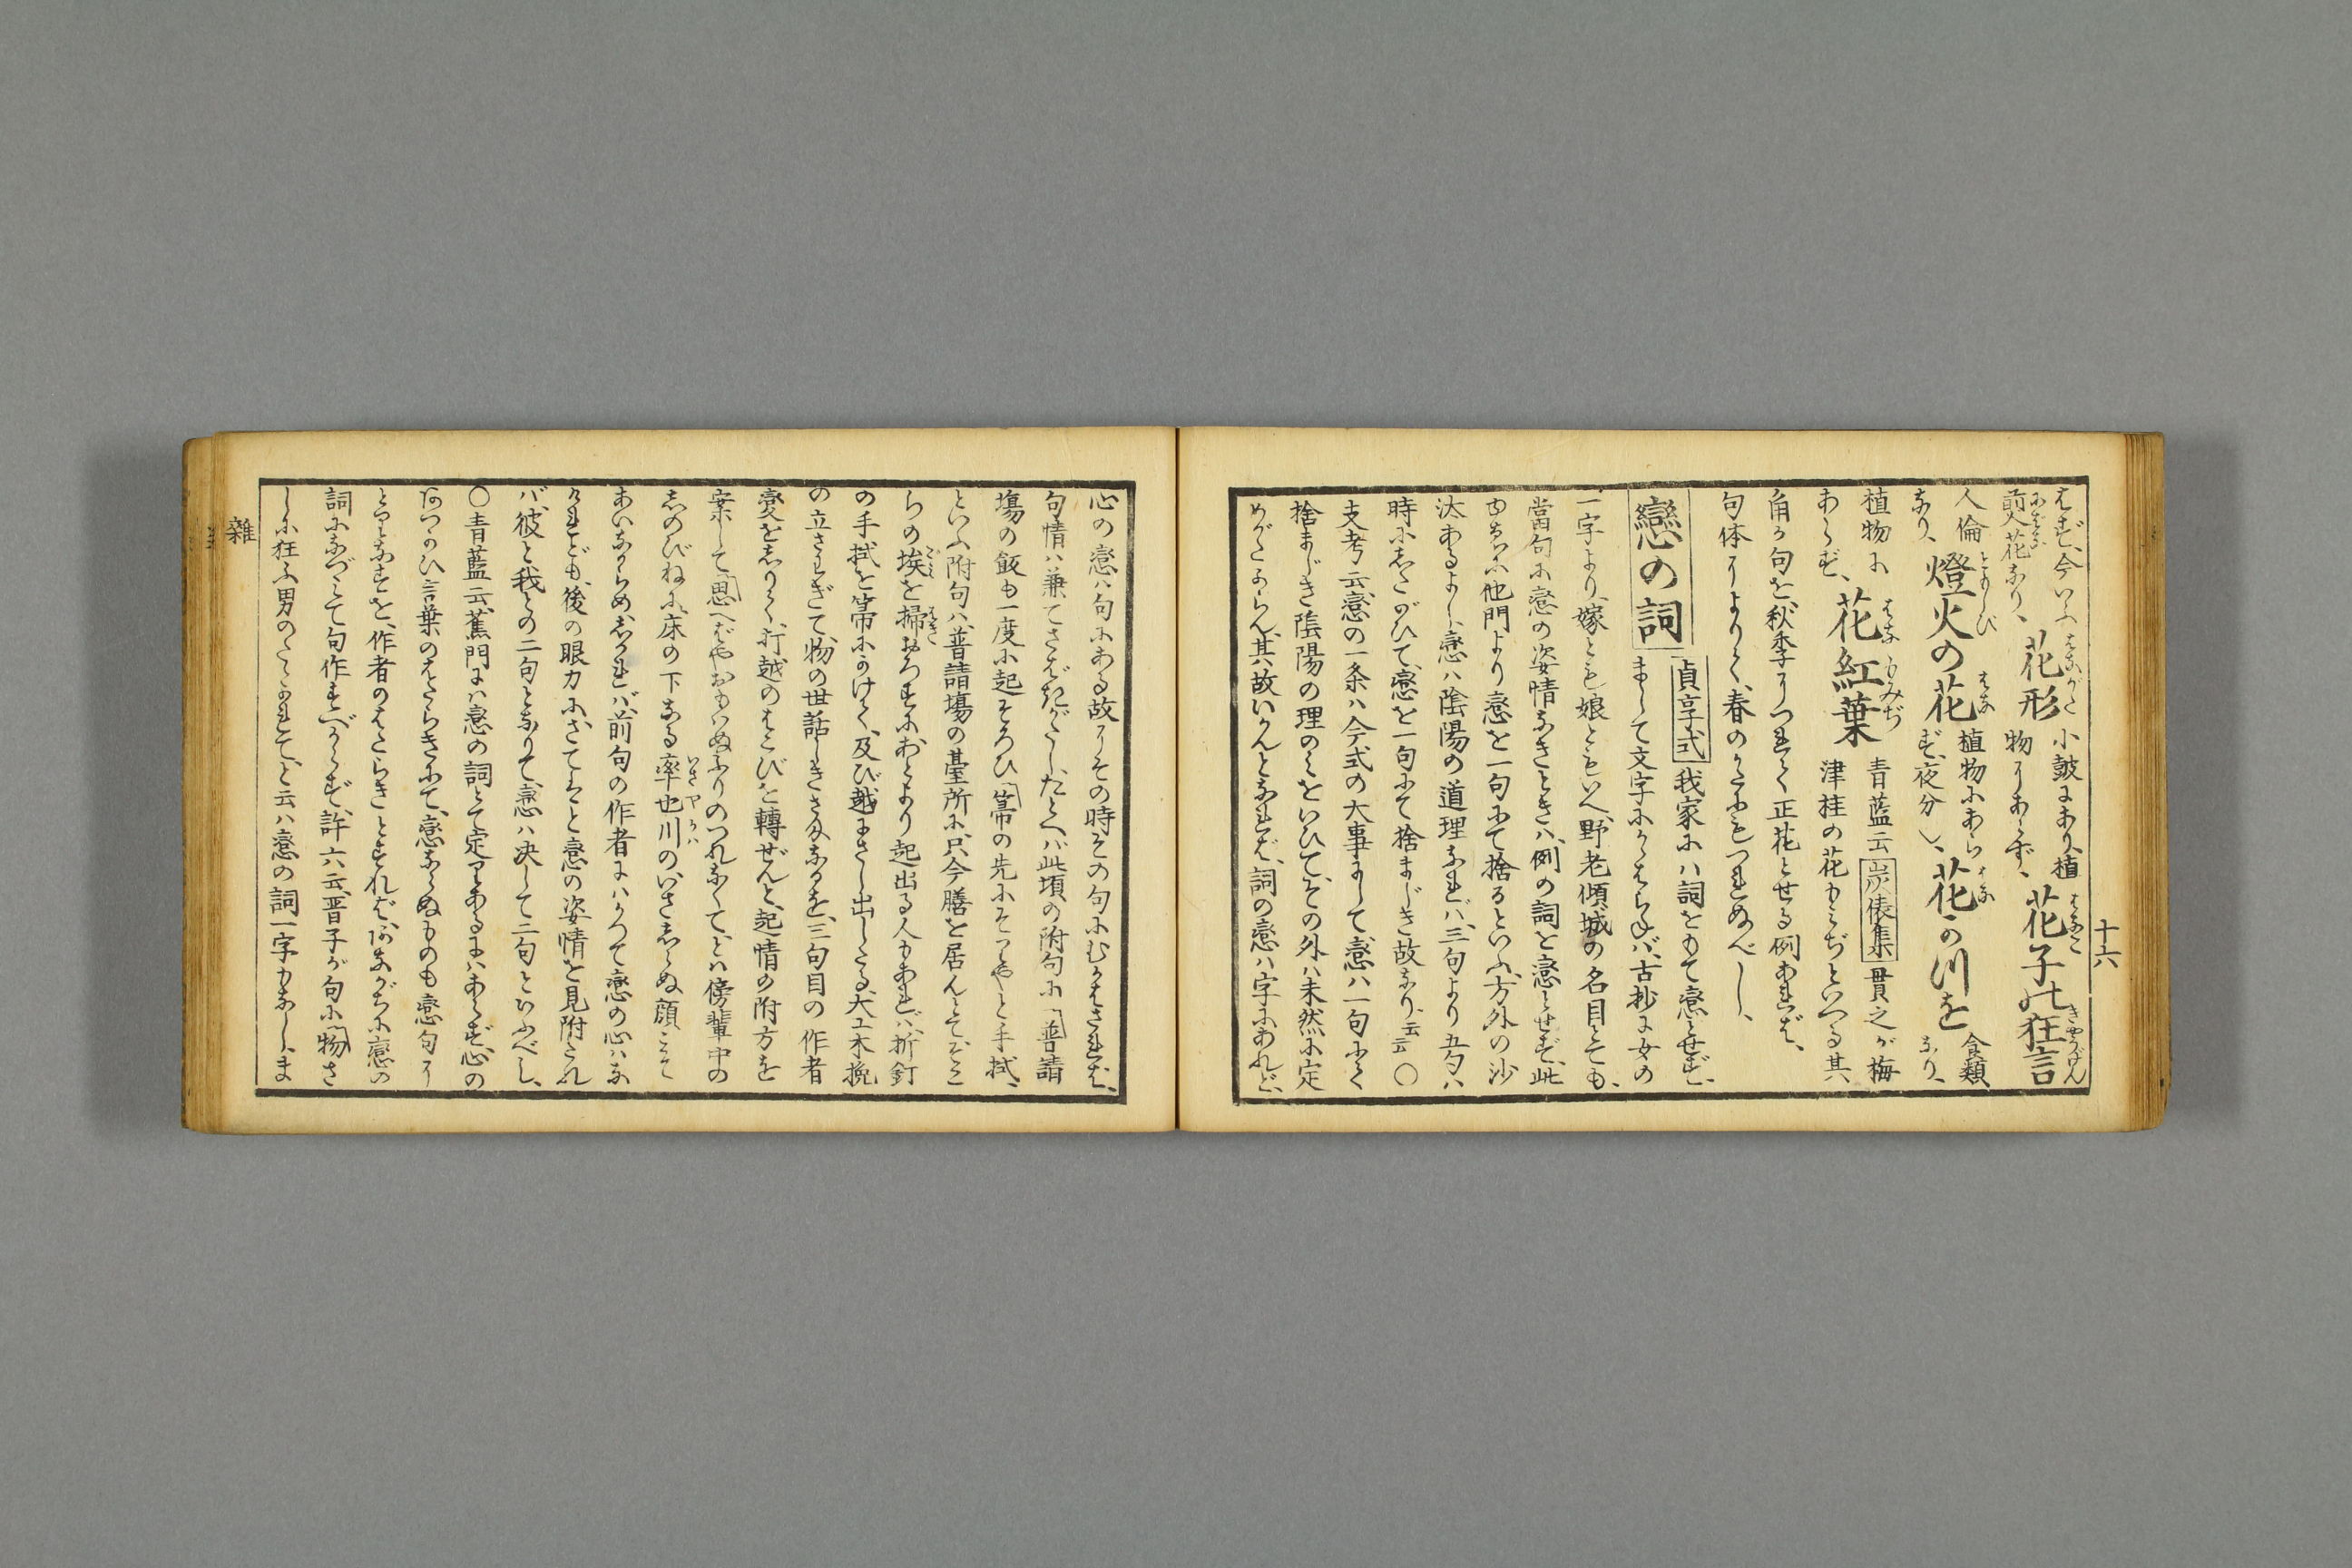 十六
はず、今いふ
煎花なり、
花形
小皷にあり、植
物にあらず、
花子の狂言
人倫
なり、
燈火の花
植物にあら
ず、夜分
花の川を
食類
なり、
植物に
あらず、
花紅葉
青藍云炭俵集毋貫之が梅
津桂の花もみぢといへる其
角が句を、秋季につれて正花とせる例あれば、
句体によりて、春のかたにもつれぬべし、
戀の詞
貞享式我家にハ詞をもて戀とせず、
まして文字にかはらねバ、古抄に女の
一字より、嫁とも娘ともいへ、野老傾城の名目とても、
當句に戀の姿情なきときハ、例の詞を戀とせず、此
ゆゑに他門より戀を一句にて捨るといふ、方外の沙
汰あるよし、戀ハ陰陽の道理なれバ、三句より五句ハ
時にしたがひて、戀を一句にて捨まじき故なり、云云〇
支考云、戀の一条ハ今式の大事にして、戀ハ一句にて
捨まじき陰陽の理のミをいひて、その外ハ未然に定
めがたからん、其故いかんとなれば、詞の戀ハ字にあれど、
心の戀ハ句にある故に、その時その句にむかはざれば、
句情ハ兼てさだめがたし、たとへバ此頃の附句に「普請
場の飯も一度に起そろひ「箒の先にそつとやと手拭、
といふ附句ハ、普請場の臺所に、只今膳を居んとて、そこ
らの埃を掃おろすに、おとより起出る人もあれバ、折釘
の手拭を箒にかけて、及び越にさし出したる、大工木挽
の立さわぎて、物の世話しきさまなるを、三句目の作者
變をしりて、打越のはこびを轉ぜんと、起情の附方を
案じて「思へばやおもいぬふりのつれなくて、とハ傍輩中の
しのびねに、床の下なる率也川の、いさしらぬ顔して
あいなからめ、しかれバ、前句の作者にハかつて戀の心ハな
けれども、後の眼力に、さてこそと戀の姿情を見附られ
バ、彼と我との二句となりて、戀ハ決して二句といふべし、
〇青藍云、蕉門にハ戀の詞とて定りあるにハあらず、心の
あつかひ言葉のはたらきにて、戀ならぬものも戀句に
とりなすを、作者のはたらきとすれば、あながちに戀の
詞になづミて句作すべからず、許六云、晋子が句に「物さ
しに狂ふ男のたゝかれて、と云ハ戀の詞一字もなし、ま
雜